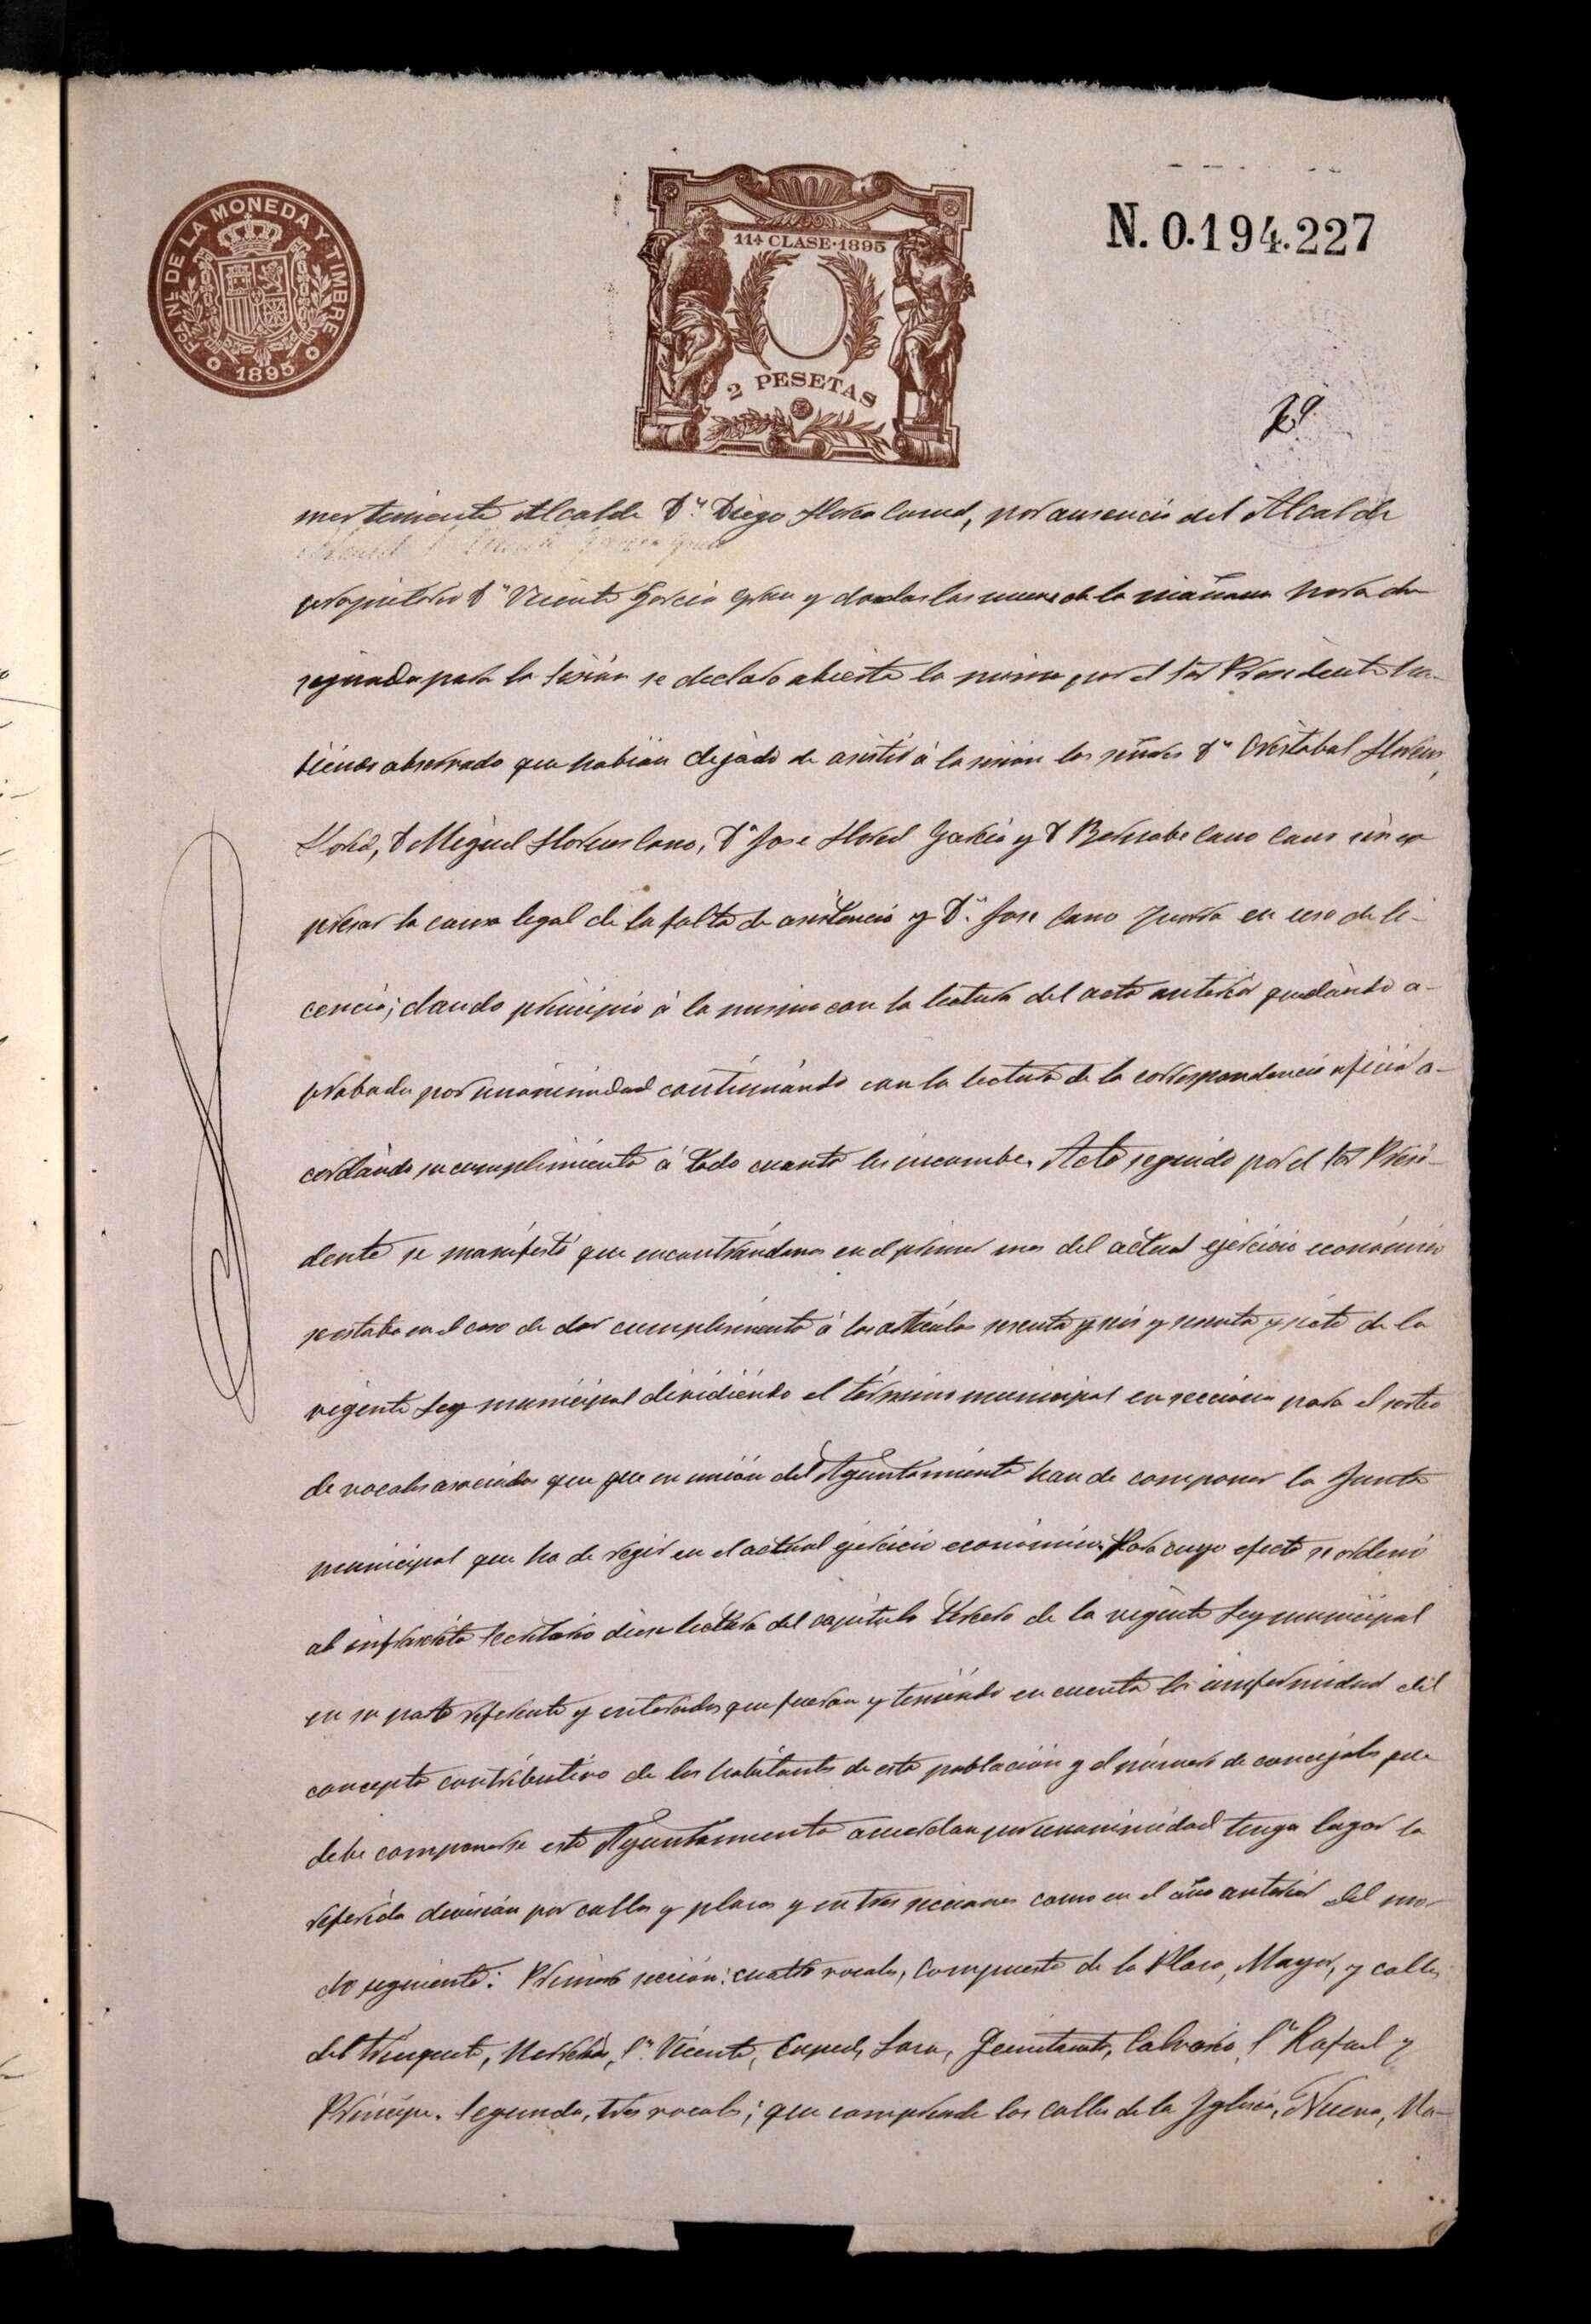 FCA NL DE LA MONEDA Y TIMBRE
1895
11ª CLASE·1895
2 PESETAS
N. 0.194.227
29
mer teniente Alcalde Dn Diego Llorca, por ausencia del Alcalde
propietario Dn Vicente Garcia Grau y dadas las nueve de la mañana hora de-
signada para la sesión se declaro abierta la misma por el Sor Presidente ha-
biendo observado que habian dejado de asistir á la sesion los señores Dn Cristobal Llorens
D Miguel Llorens Cano, Dn Jose Lloret Garcia y D Cano Cano sin ex
presar la causa legal de la falta de asistencia y Dn Jose Cano en uso de li-
cencia; dando principio á la misma con la lectura del acta anterior quedando a-
probada por unanimidad continuando con la lectura de la correspondencia oficial a-
cordando su cumplimiento á todo cuanto les incumbe. Acto seguido por el Sor Presi-
dente se manifestó que encontrándonos en el primer mes del actual ejercicio económico
se estaba en el caso de dar cumplimiento á los artículos sesenta y seis y sesenta y siete de la
vigente Ley municipal dividiendo el término municipal en secciones para el sorteo
de vocales asociados que que en unión del Ayuntamiento han de componer la Junta
municipal que ha de regir en el actual ejercicio económico. Para cuyo efecto se ordenó
al infrascrito Secretario diese lectura del capítulo tercero de la vigente Ley municipal
en su parte referente y enterados que fueron y teniendo en cuenta la uniformidad del
concepto contributivo de los habitantes de esta población y el número de concejales que
debe componerse este Ayuntamiento acuerdan por unanimidad tenga lugar la
referida división por calles y plazas y en tres secciones como en el año anterior del mo-
do siguiente: Primera sección: cuatro vocales, compuesta de la Plaza, Mayor, y calles
del Trinquete, Sn Vicente, Calvario, Sn Rafael y
Principe. Segunda, tres vocales; que comprende las calles de la Yglesia, Nueva, Ma-